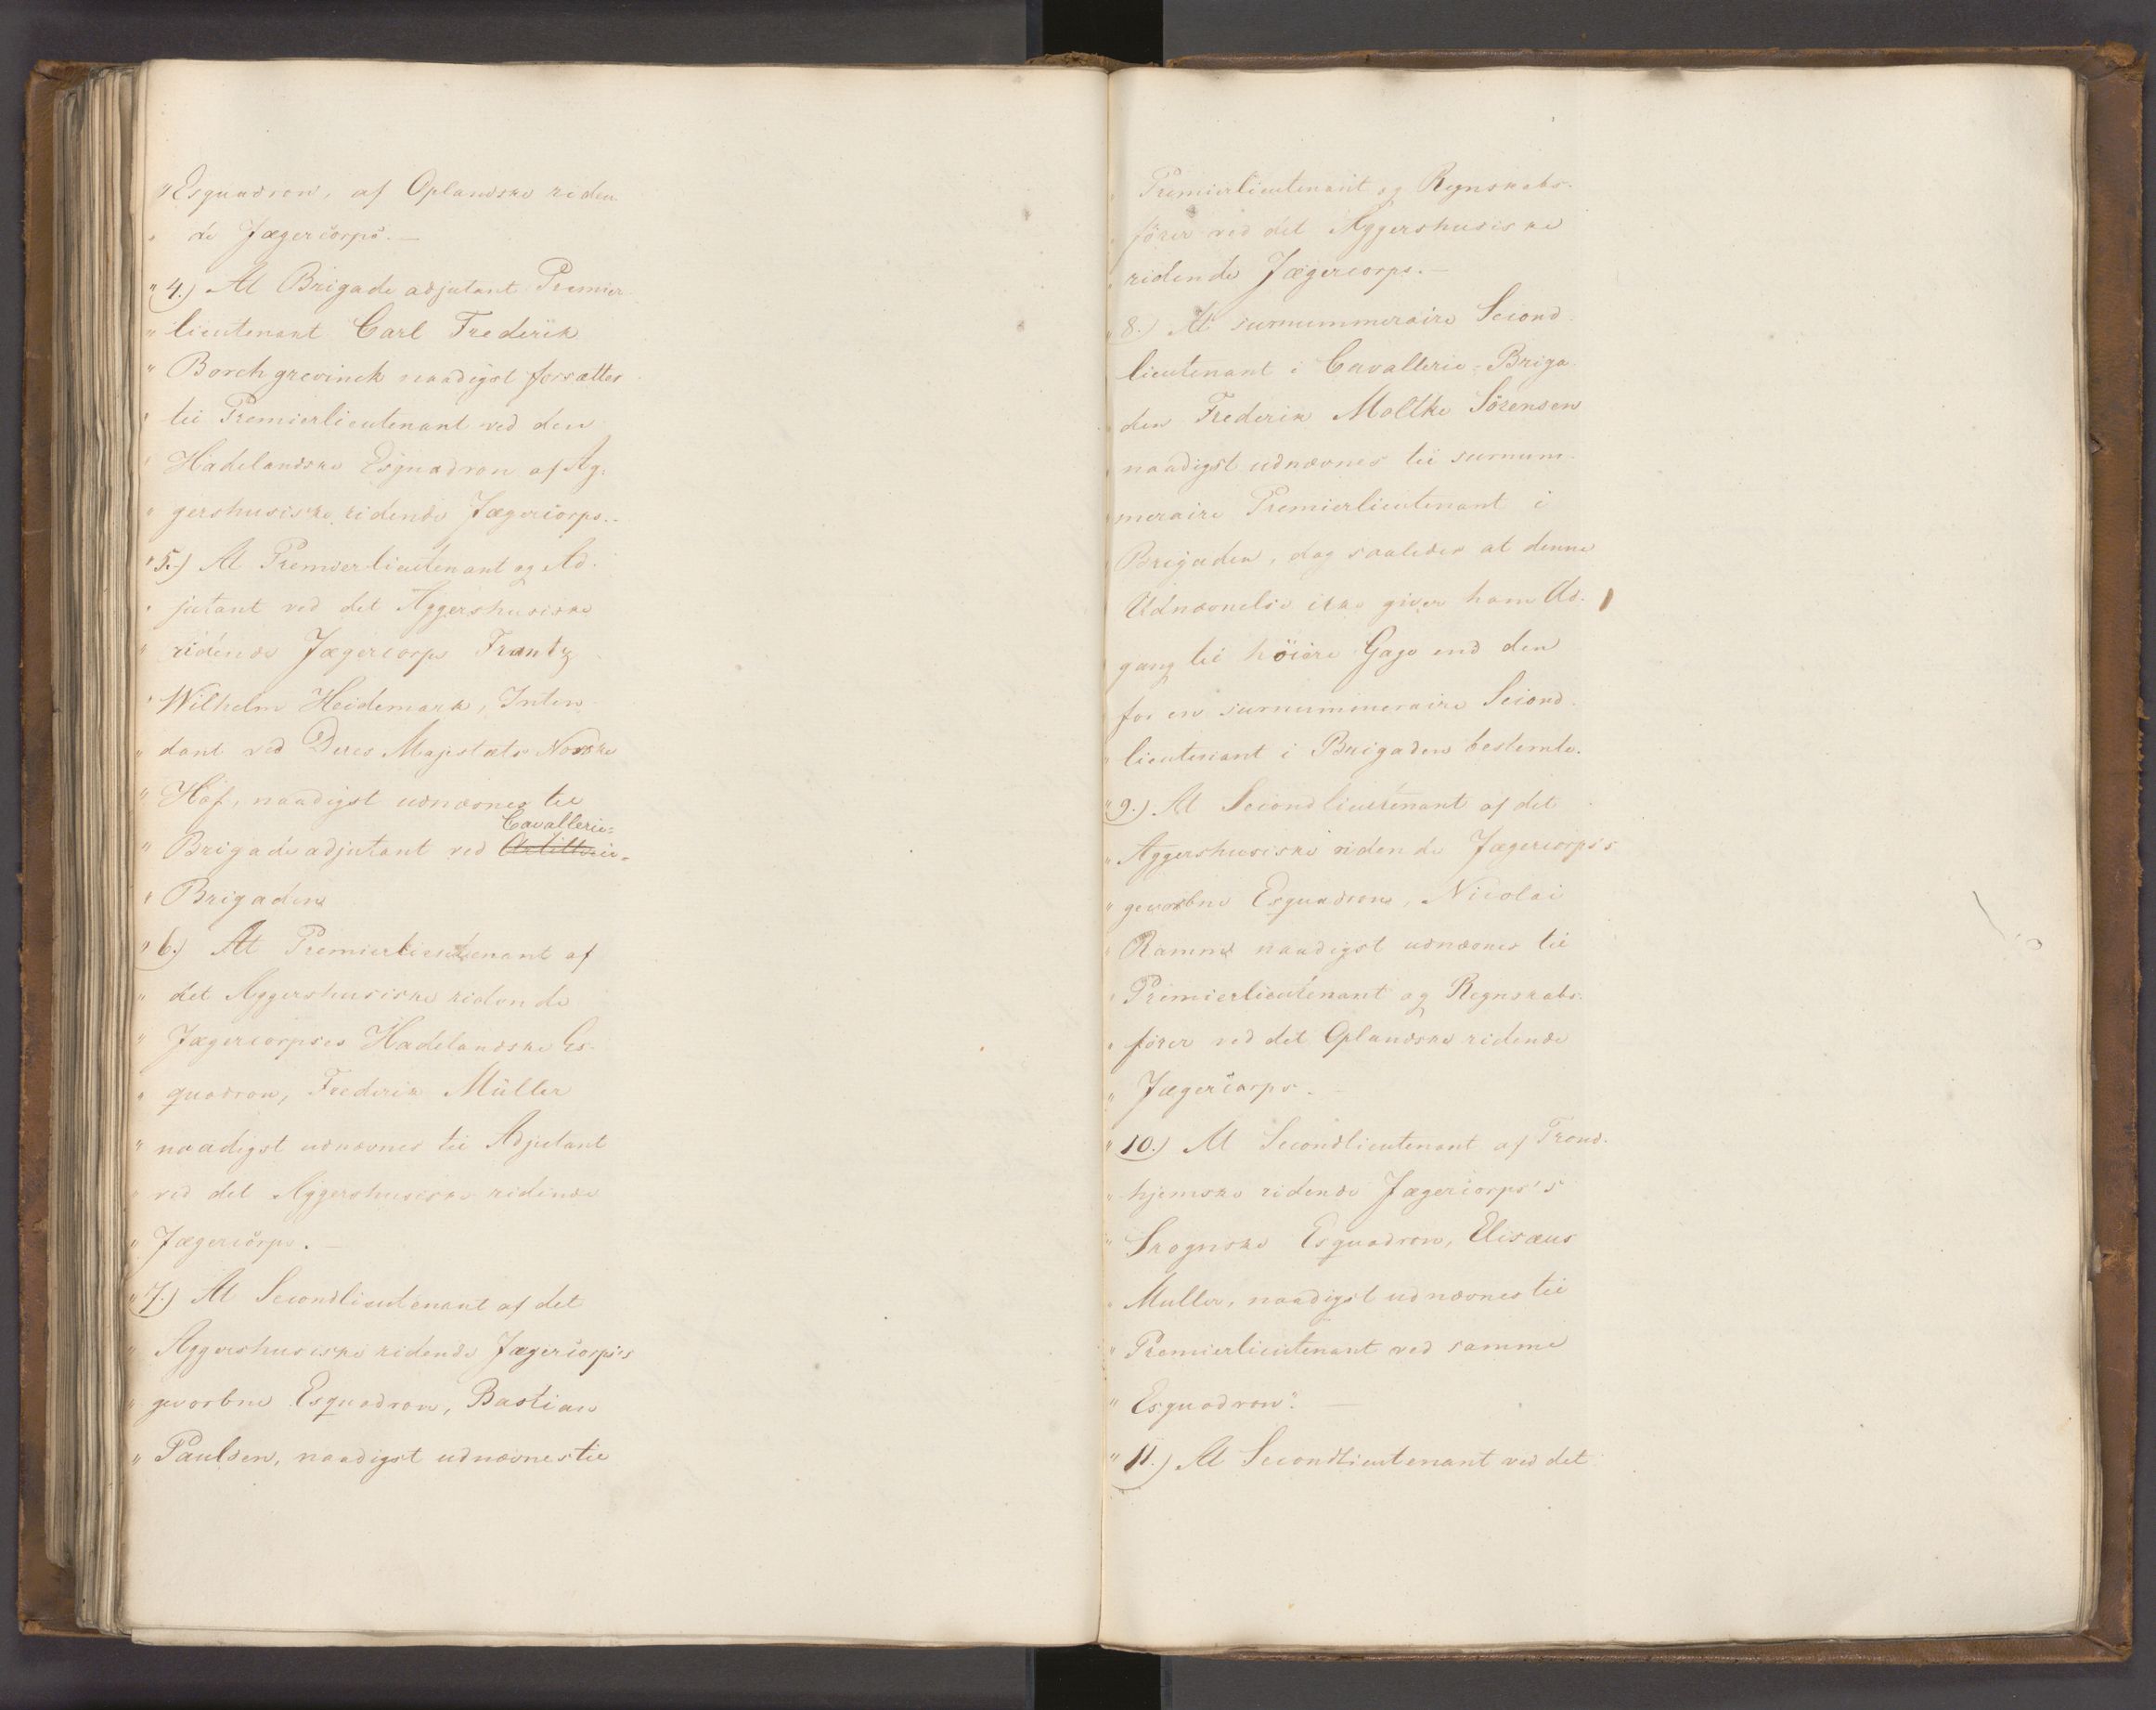 "Esquadron, af Oplandske riden-
" de Jægercorps. —
" 4.) At Brigadeadjutant Premier-
" lieutenant Carl Frederik
" Borchgrevinck naadigst forsættes
" til Premierlieutenant ved den
" Hadelandske Esquadron af Ag-
" gershusiske ridende Jægercorps. -
" 5.) At Premierlieutenant og Ad-
" jutant ved det Aggershusiske
" ridende Jægercorps Frantz
" Wilhelm Heidemark, Inten-
" dant ved Deres Majestæts Norske
" Hof, naadigst udnævnes til
Cavallerie-
" Brigadeadjutant ved Artillerie-
" Brigaden
" 6.) At Premierlieutenant af
" det Aggershusiske ridende
" Jægercorpses Hadelandske Es-
" quadron, Frederik Müller
" naadigst udnævnes til Adjutant
" ved det Aggershusiske ridende
" Jægercorps. —
" 7.) At Secondlieutenant af det
" Aggershusiske ridende Jægercorps's
" gevorbne Esquadron, Bastian
" Paulsen, naadigst udnævnes til
" Premierlieutenant og Regnskabs-
" förer ved det Aggershusiske
" ridende Jægercorps. —
" 8.) At surnummeraire Second-
" lieutenant i Cavallerie-Briga-
" den Frederik Moltke Sörensen
" naadigst udnævnes til surnum-
" meraire Premierlieutenant i
" Brigaden, dog saaledes at denne
" Udnævnelse ikke giver ham Ad-
" gang til höiere Gage end den
" for en surnummeraire Second-
" lieutenant i Brigaden bestemte.
" 9.) At Secondlieutenant af det
" Aggershusiske ridende Jægercorps's
" gevorbne Esquadron, Nicolai
" Ramm naadigst udnævnes til
" Premierlieutenant og Regnskabs-
" förer ved det Oplandske ridende
" Jægercorps. —
" 10.) At Secondlieutenant af Trond-
" hjemske ridende Jægercorps's
" Skognske Esquadron, Elisæus
" Müller, naadigst udnævnes til
" Premierlieutenant ved samme
" Esquadron". —
" 11.) At Secondlieutenant ved det